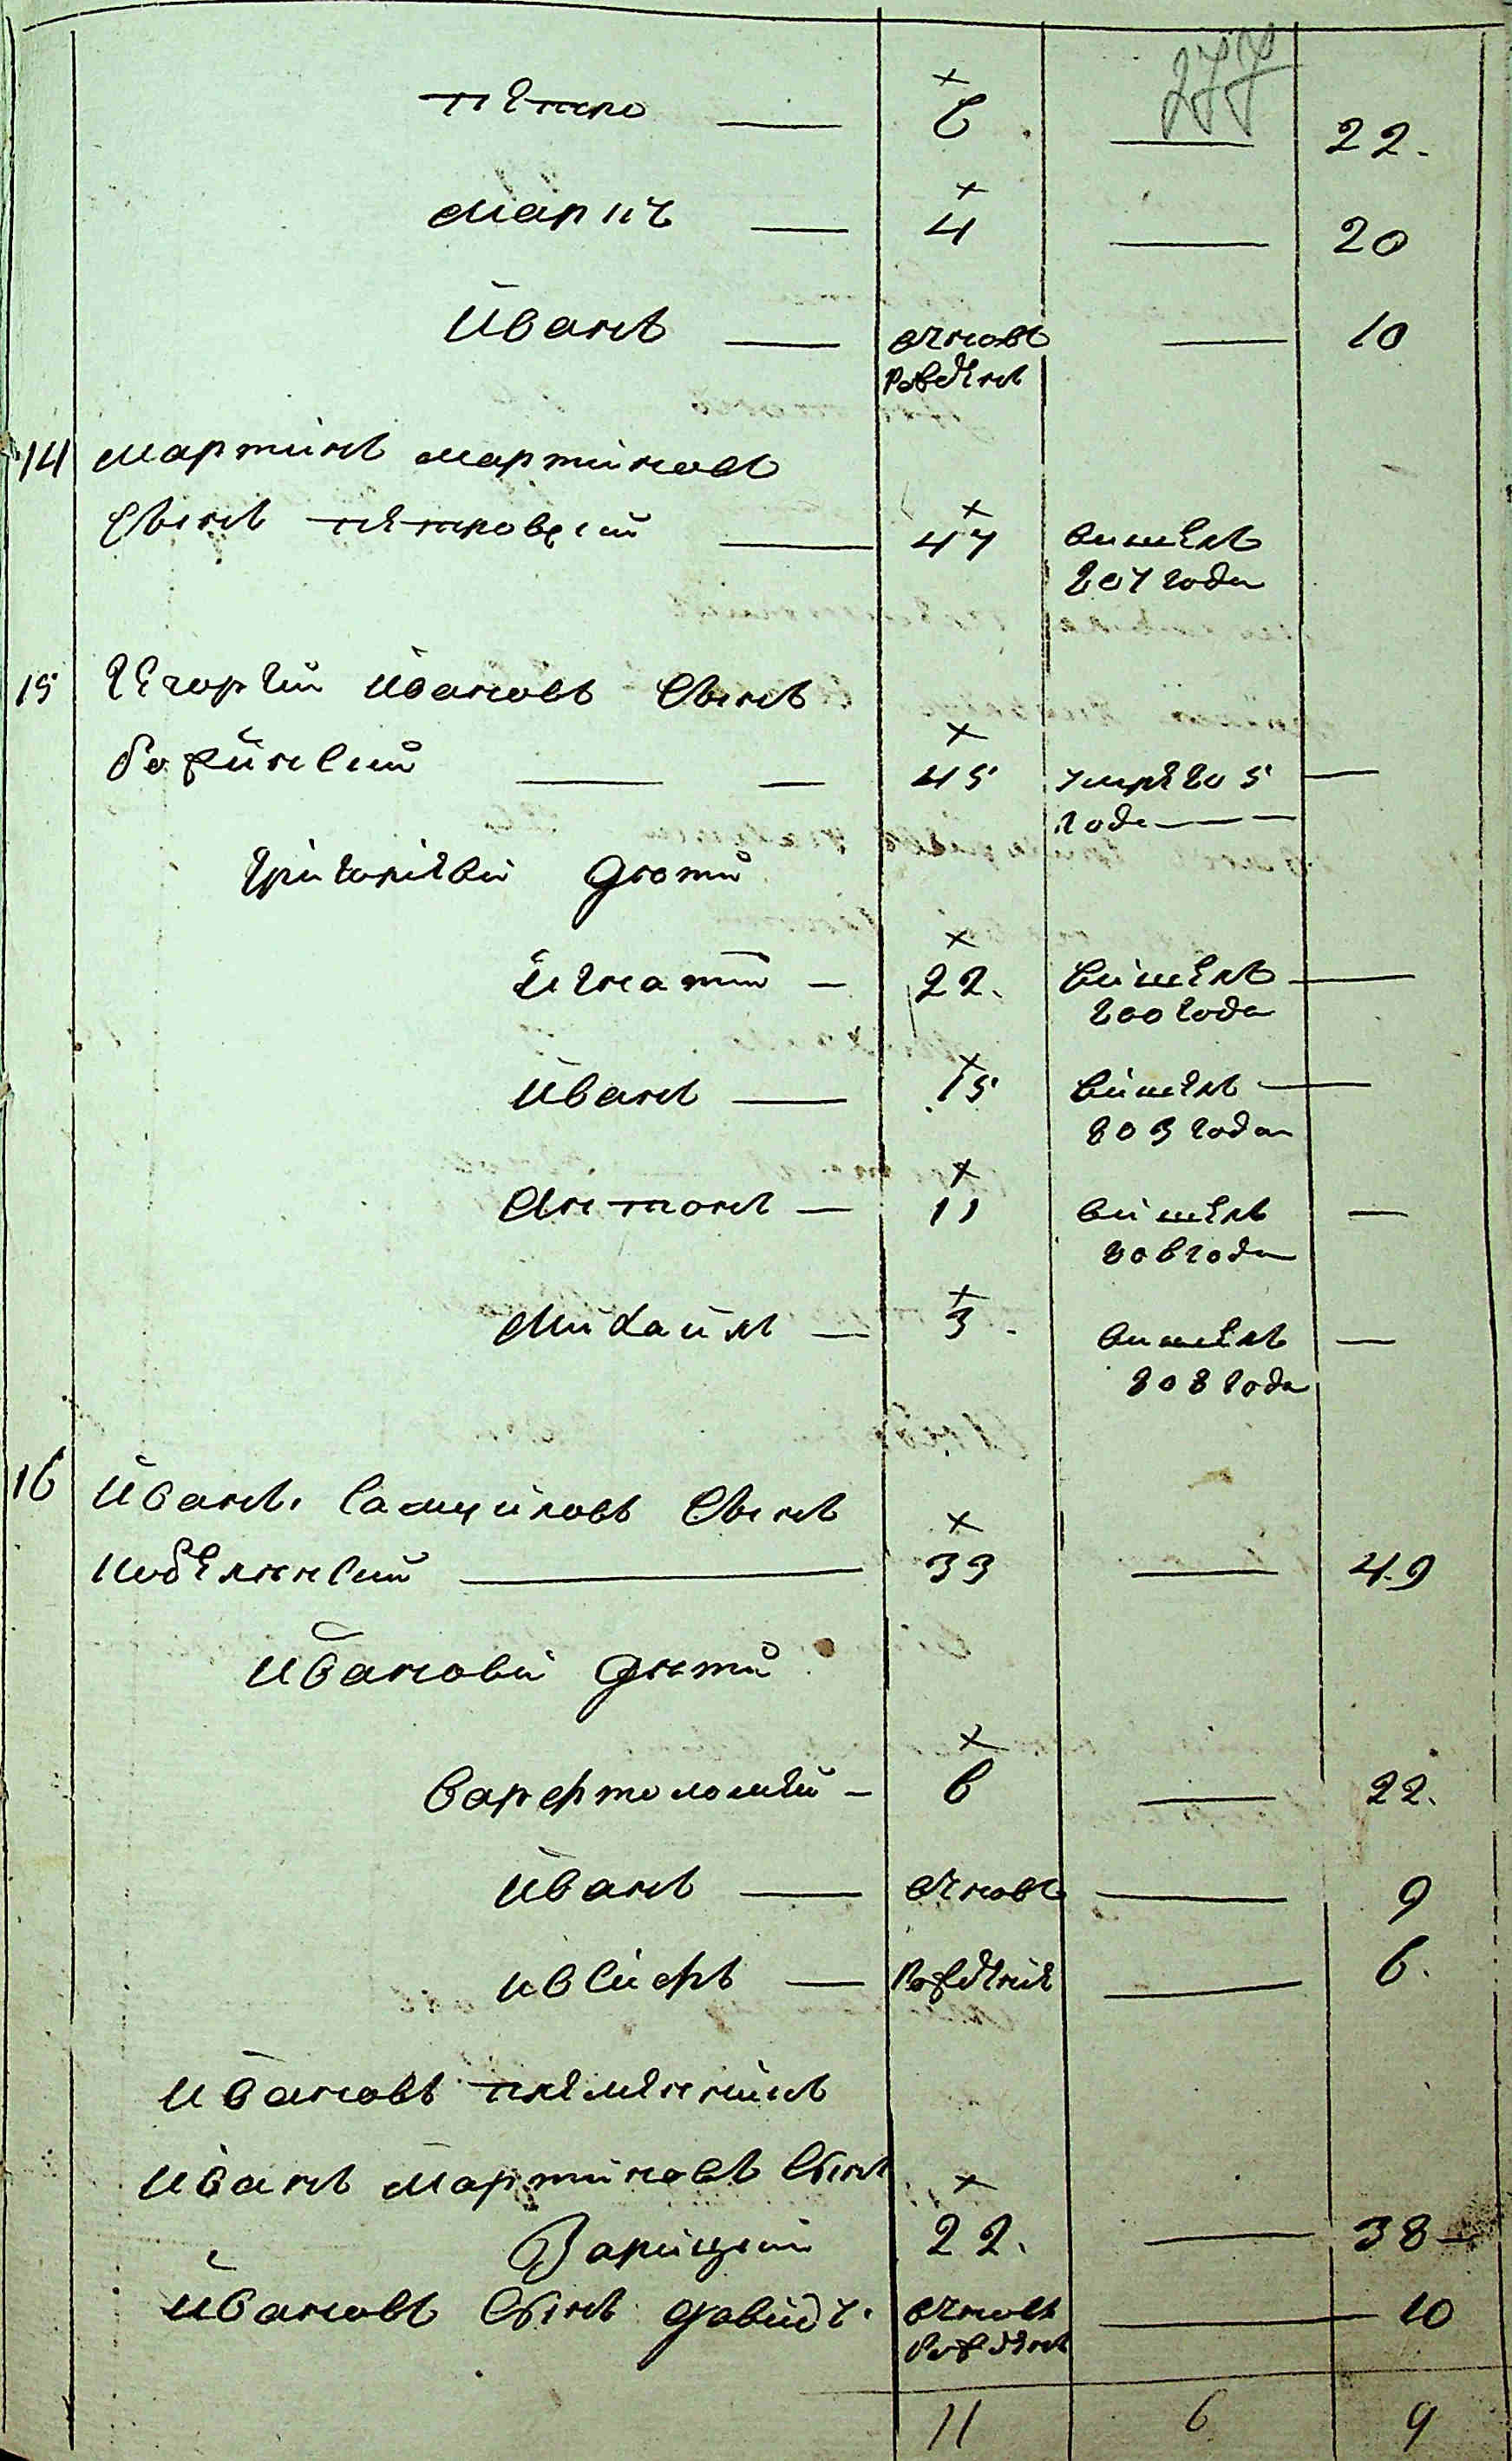 277
петръ — 6 — 22.
марко — 4 — 20
Иванъ — вновь — 10
рожденъ
14 мартинъ мартиновъ
Сынъ петровскій — 47 вышелъ
807 года
15 Григорій Ивановъ Сынъ
— 45 умре 805 —
года —
Григоріевы дети
Игнатій — 22. вышелъ —
800 года
Иванъ — 15 вышелъ —
803 года
Антонъ — 11 вышелъ —
806 года
Михаилъ — 3. вышелъ —
808 года
16 Иванъ Самуиловъ Сынъ
Кобелинскій — 33 — 49
Ивановы дети
Варфтоломей — 6 — 22.
Иванъ — вновь — 9
Иосифъ — рожденые — 6.
Ивановъ племянникъ
Иванъ Мартиновъ Сынъ
Зарицкій 22. — 38 —
Ивановъ Сынъ давидъ. вновь — 10
рожденъ
11 6 9